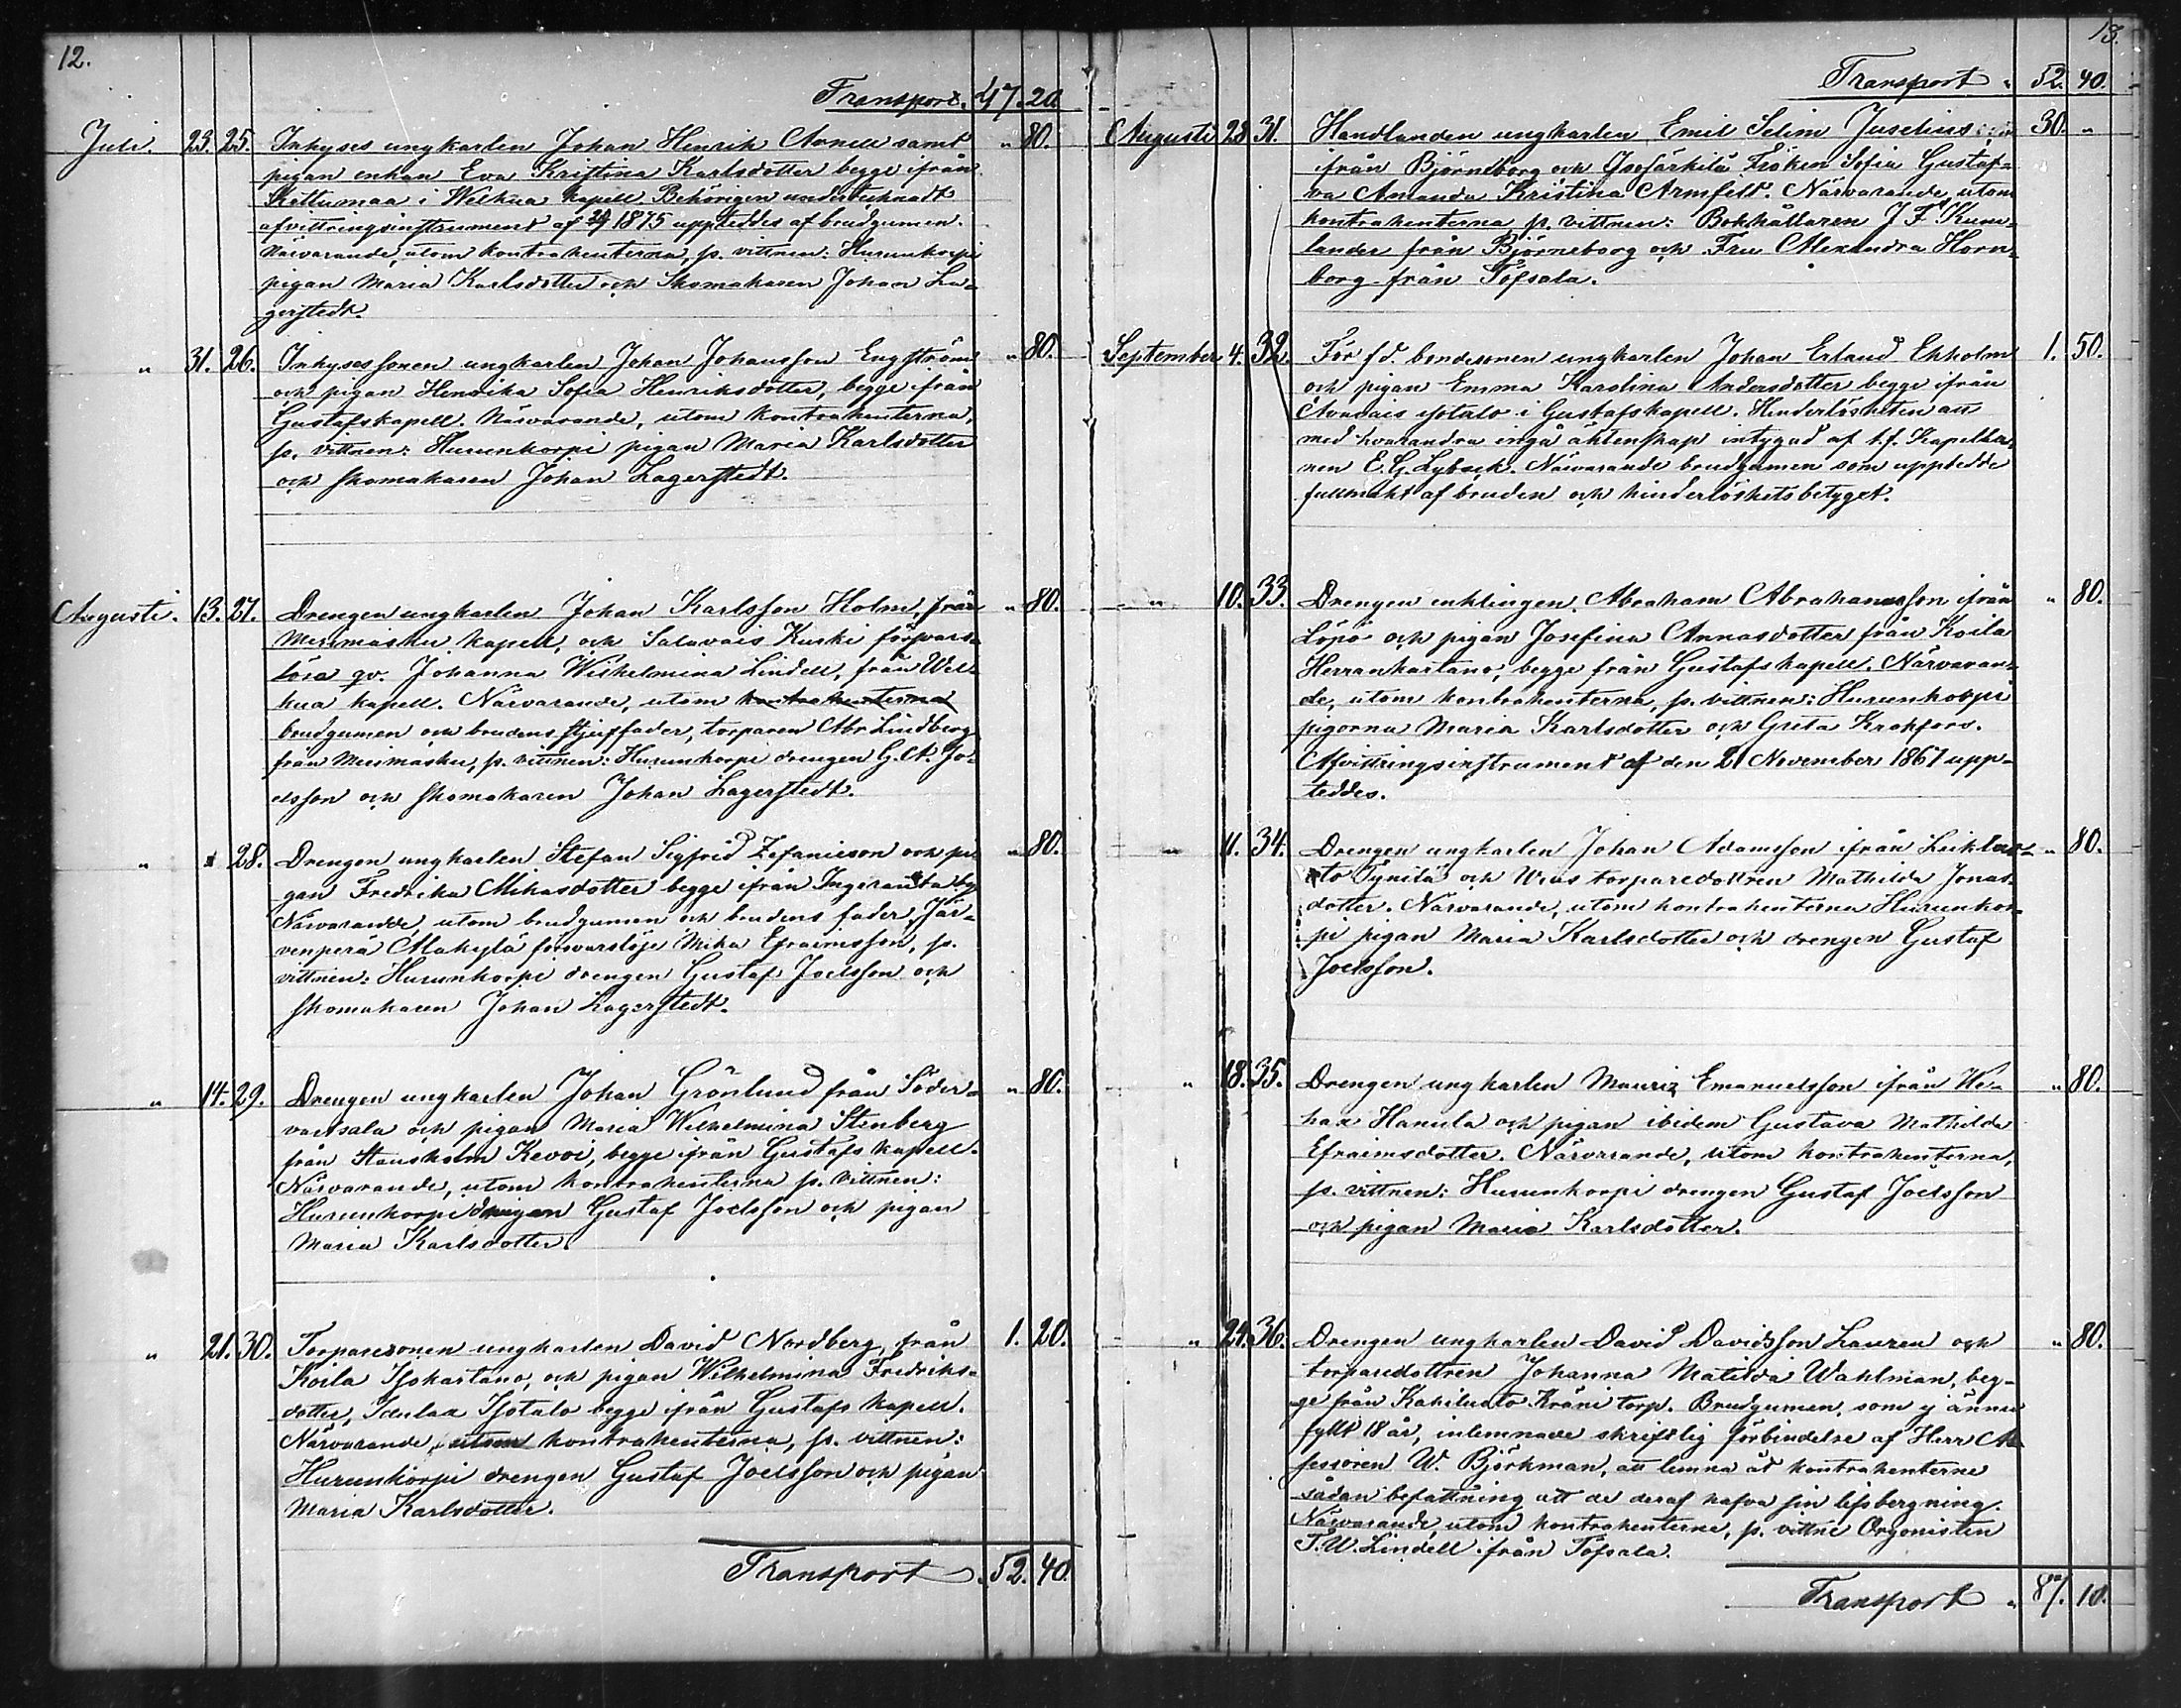 12.
Transport. 47. 20
Juli. 23. 25. Inhyses ungkarlen Johan Henrik Avnell samt „ 80.
pigan enkan Eva Kristina Karlsdotter begge ifrån
Kettumaa i Welkua kapell. Behörigen undertecknadt
afvittringsinstrument af 1875 uppteddes af brudgumen.
Närvarande, utom kontrahenterna, p. vittnen: Hurunkorpi
pigan Maria Karlsdotter och Skomakaren Johan La-
gerstedt.
„ 31. 26. Inhysessonen ungkarlen Johan Johansson Engström „ 80.
och pigan Henrika Sofia Henriksdotter, begge ifrån
Gustafs kapell. Närvarande, utom kontrahenterna,
p. vittnen: Hurunkorpi pigan Maria Karlsdotter
och skomakaren Johan Lagerstedt.
Augusti. 13. 27. Drengen ungkarlen Johan Karlsson Holm, från „ 80.
Merimasku kapell, och Salavais Kuski försvars-
lösa qv. Johanna Wilhelmina Lindell, från Wel-
kua kapell. Närvarande, utom kontrahenterna
brudgumen och brudens stjuffader, torparen Abr Lindberg
från Merimasku, p. vittnen: Hurunkorpi drengen G. A. Jo-
elsson och skomakaren Johan Lagerstedt.
„ „ 28. Drengen ungkarlen Stefan Sigfrid Zefanieson och pi- „ 80.
gan Fredrika Mikasdotter begge ifrån Ingeranta by
Närvarande, utom brudgumen och brudens fader, Jär-
venperä Alakylä försvarslöse Mika Efraimsson, p.
vittnen: Hurunkorpi drengen Gustaf Joelsson och
skomakaren Johan Lagerstedt.
„ 14. 29. Drengen ungkarlen Johan Grönlund från Söder- „ 80.
vartsala och pigan Maria Wilhelmina Stenberg
från Kevoi, begge ifrån Gustafs kapell.
Närvarande, utom kontrahenterna p. vittnen:
Hurunkorpi drengen Gustaf Joelsson och pigan
Maria Karlsdotter.
„ 21. 30. Torparesonen ungkarlen David Nordberg, från 1. 20.
Koila Isokartano, och pigan Wilhelmina Fredriks-
dotter, Isotalo begge ifrån Gustafs kapell.
Närvarande, utom kontrahenterna, p. vittnen:
Hurunkorpi drengen Gustaf Joelsson och pigan
Maria Karlsdotter.
Transport „ 52. 40.
13.
Transport „ 52. 40.
Augusti 28 31. Handlanden ungkarlen Emil Selim Juselius 30. „
ifrån Björneborg och Isosärkilä Fröken Sofia Gustaf-
va Amanda Kristina Armfelt. Närvarande, utom
kontrahenterna p. vittnen: Bokhållaren J F Kum-
lander från Björneborg och Fru Alexandra Horn-
borg från Töfsala.
September 4. 32. För f d. bondesonen ungkarlen Johan Erland Ekholm 1. 50.
och pigan Emma Karolina Andersdotter begge ifrån
Isotalo i Gustafs kapell. Hinderlösheten att
med hvarandra ingå äktenskap intygad af t.f. Kapella-
nen E. G. Lybäck. Närvarande brudgumen som upptedde
fullmakt af bruden och hinderlöshetsbetyget.
„ 10. 33. Drengen enklingen Abraham Abrahamsson ifrån „ 80.
Löpö och pigan Josefina Annasdotter från Koila
Herrankartano, begge från Gustafs kapell. Närvaran-
de, utom kontrahenterna, p. vittnen: Hurunkorpi
pigorna Maria Karlsdotter och Greta Krakfors.
Afvittringsinstrument af den 21 November 1867 upp-
teddes.
„ 11. 34. Drengen ungkarlen Johan Adamsson ifrån Leikluo- „ 80.
to Tynilä och Wias torparedottren Mathilda Jonas-
dotter. Närvarande, utom kontrahenterna Hurunkor-
pi pigan Maria Karlsdotter och drengen Gustaf
Joelsson.
„ 18. 35. Drengen ungkarlen Mauriz Emanuelsson ifrån We- „ 80.
haa Hanula och pigan ibidem Gustava Mathilda
Efraimsdotter. Närvarande, utom kontrahenterna,
p. vittnen: Hurunkorpi drengen Gustaf Joelsson
och pigan Maria Karlsdotter.
„ 24. 36. Drengen ungkarlen David Davidsson Lauren och „ 80.
torparedottren Johanna Matilda Wahlman, beg-
ge från Kahiluoto Kräni torp. Brudgumen, som ej ännu
fyllt 18 år, inlemnade skriftlig förbindelse af Herr As-
sessoren W. Björkman, att lemna åt kontrahenterne
sådan befattning att de deraf hafva sin lifsbergning.
Närvarande, utom kontrahenterne, p. vittne Organisten
T. W. Lindell från Töfsala.
Transport „ 87. 10.